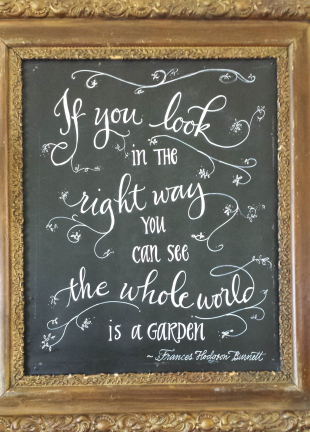 If you look
in the
right way
you
can see
the whole world
is a garden
~ Frances Hodgson Burnett